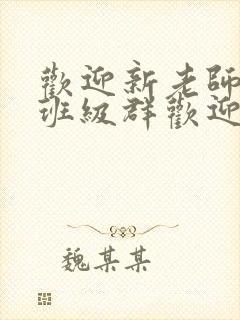 歡迎新老師
班級群歡迎
魏某某